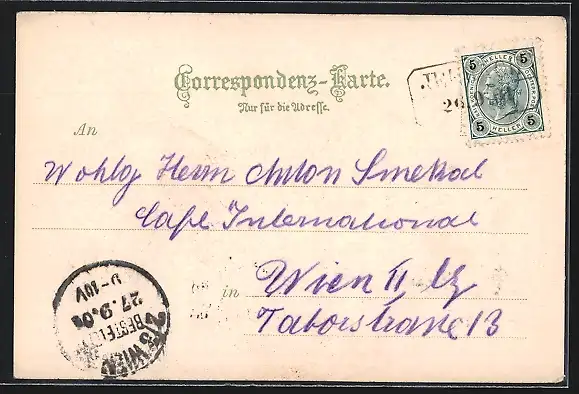 Correspondenz-Karte.
Nur für die Adresse.
An
Wohlg Herrn Anton Smekal
Cafe International
in Wien II
Taborstrasse 13
5 5
HELLER
5 5
HELLER
26 9
9-10V
27.9.0
BESTELLT
WIEN